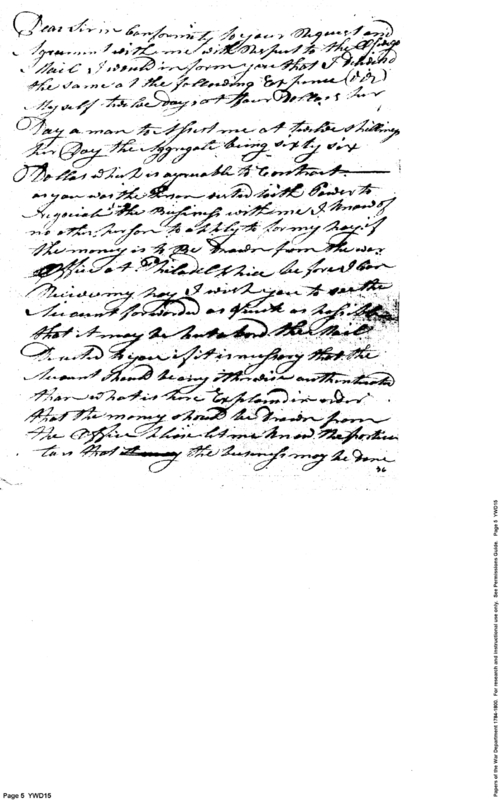 Dear Sir in Conformity to your Request and
Agreement with me with Respect to the
Mail I would inform you that I delivered
the same at the following Expence
My self twelve days at four Dollars per
Day a man to Assist me at twelve shillings
per Day the Aggregate being sixty six
Dollars which is agreeable to Contract
as you was the Person vested with Power to
Negociate the Business with me I know of
no other person to apply to for my pay if
the money is to be Drawn from the war
Office at Philadelphia before I can
Receive my pay I wish you to the
Account forwarded as Quick as possible
that it may be put abord the Mail
Directed to you if it is necessary that the
Account should be any otherwise authenticated
than what is here Explained in order
that the money should be Drawn from
the Office Please let me know the particu
lars that the business may be done
Page 5 YWD15
Papers of the War Department 1784-1800. For research and instructional use only. See Permissions Guide. Page 5 YWD15